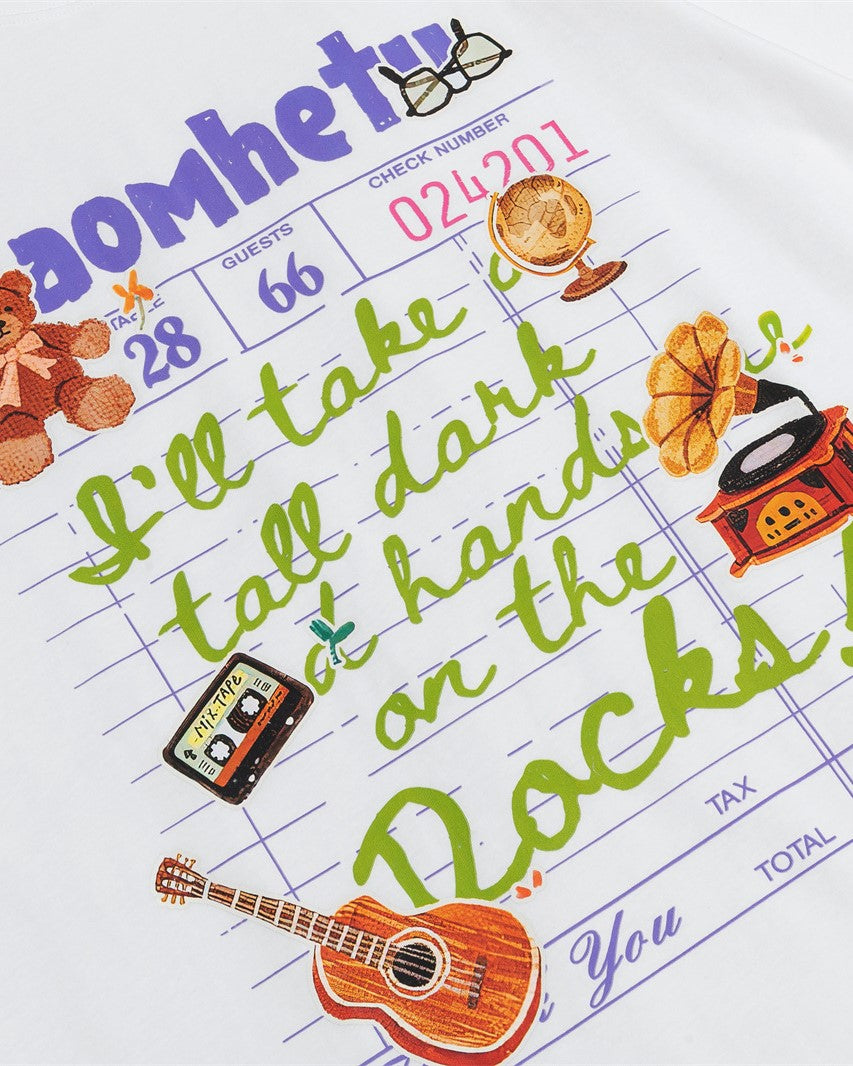 aomhet
CHECK NUMBER
024201
GUESTS
66
28
I'll take a
tall dark
hands
on the
Rocks!
MIX-TAPE
TAX
TOTAL
You